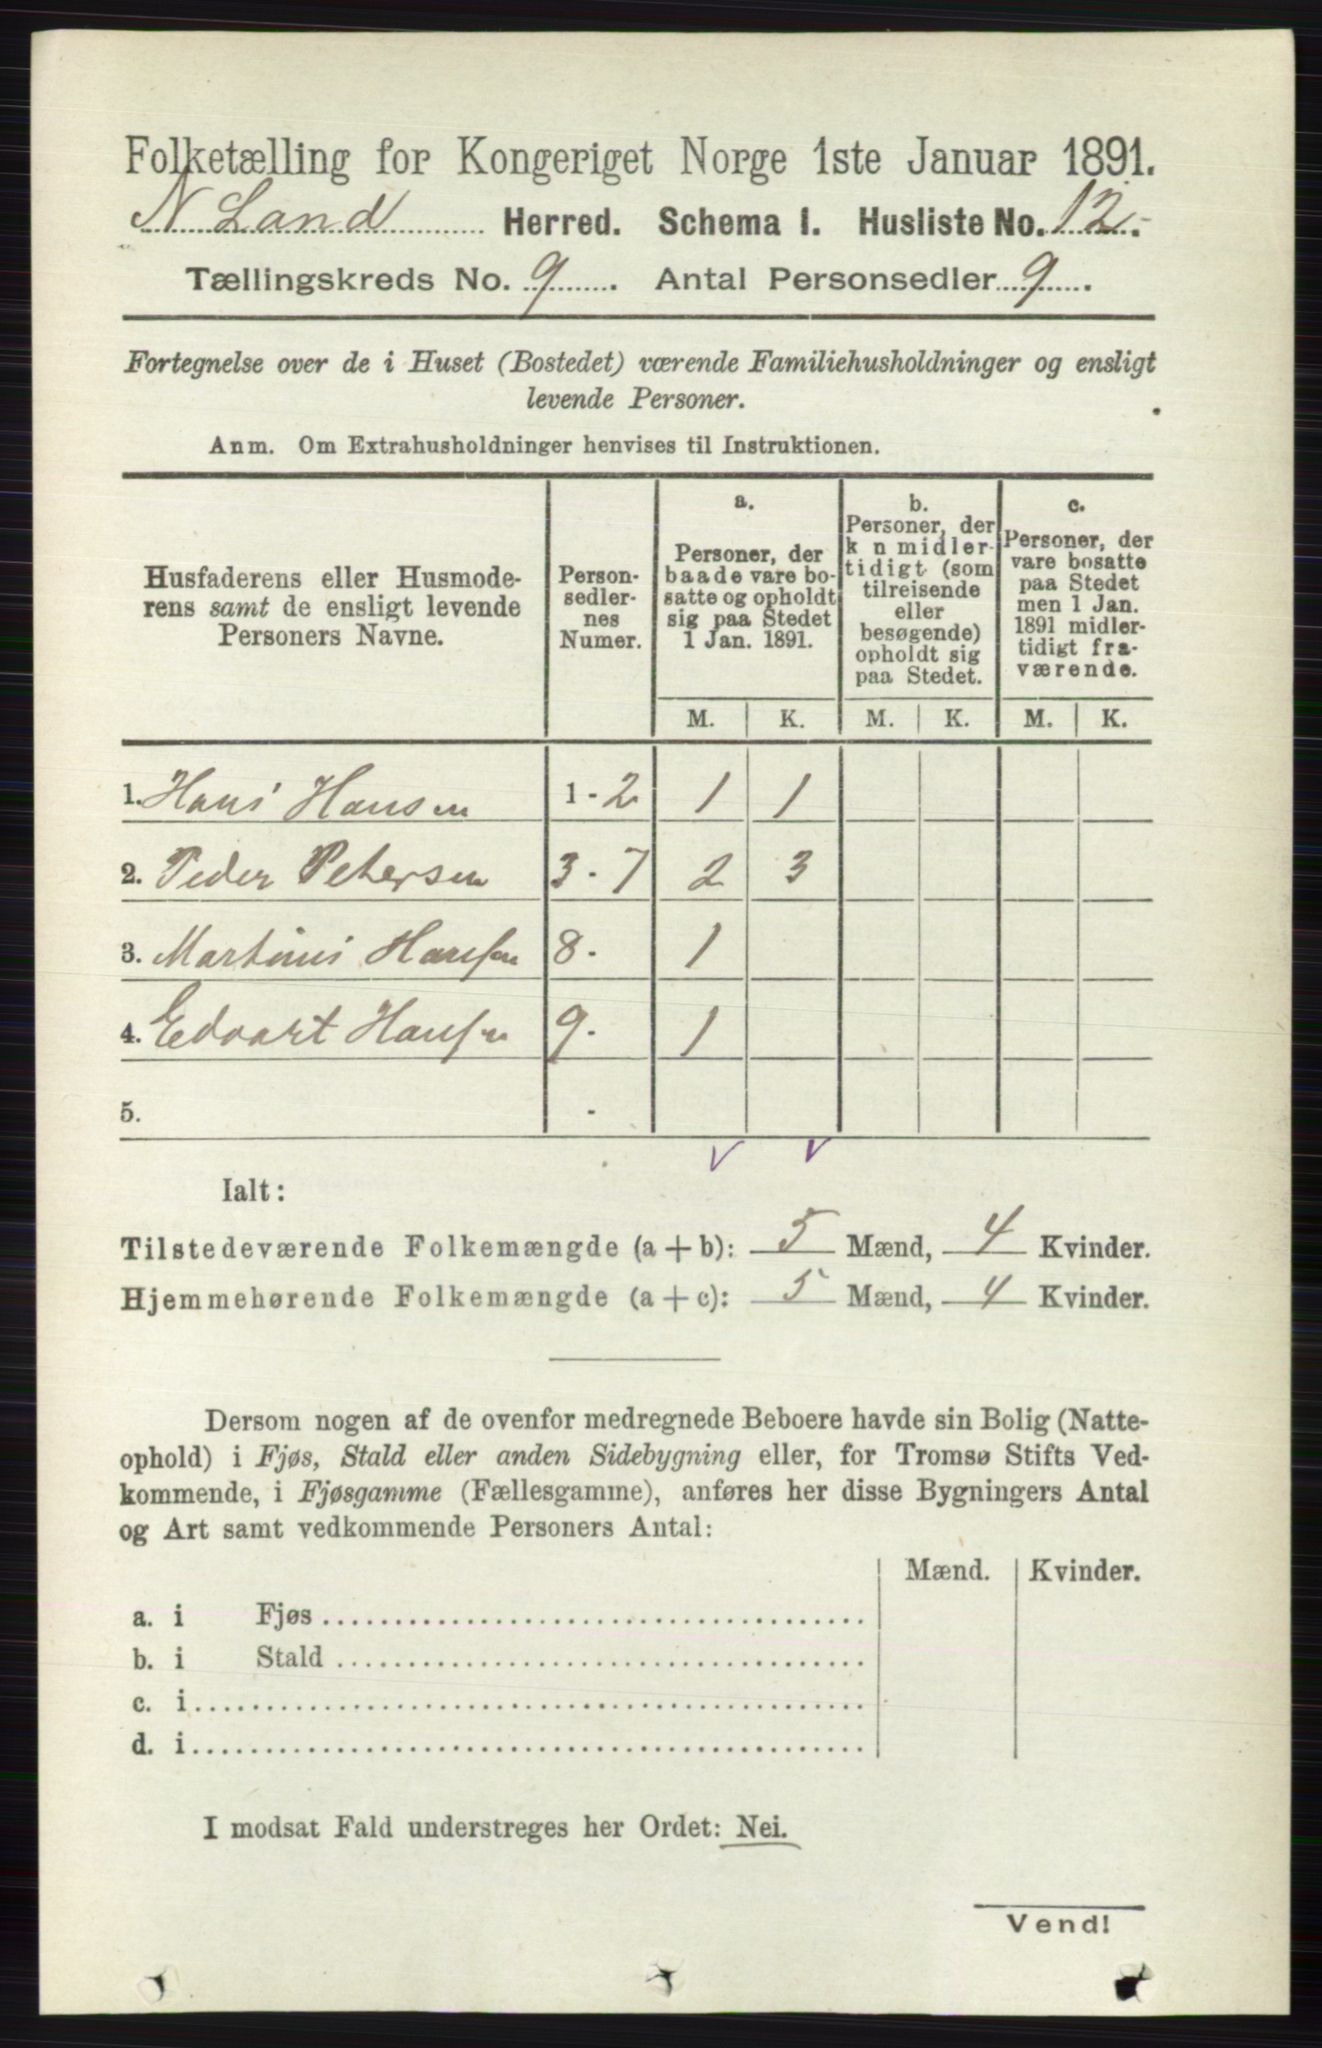 Folketælling for Kongeriget Norge 1ste Januar 1891.
N Land Herred. Schema I. Husliste No. 12.
Tællingskreds No. 9. Antal Personsedler 9.
Fortegnelse over de i Huset (Bostedet) værende Familiehusholdninger og ensligt
levende Personer.
Anm. Om Extrahusholdninger henvises til Instruktionen.
Husfaderens eller Husmode-
rens samt de ensligt levende
Personers Navne.
Person-
sedler-
nes
Numer.
a.
Personer, der
baade vare bo-
satte og opholdt
sig paa Stedet
1 Jan. 1891.
b.
Personer, der
k n midler-
tidigt (som
tilreisende
eller
besøgende)
opholdt sig
paa Stedet.
c.
Personer, der
vare bosatte
paa Stedet
men 1 Jan.
1891 midler-
tidigt fra-
værende.
M. K. M. K. M. K.
1. Hans Hansen 1 - 2 1 1
2. Peder Petersen 3 - 7 2 3
3. Martinus Hansen 8 - 1
4. Edvart Hansen 9 - 1
5. -
Ialt:
Tilstedeværende Folkemængde (a + b): 5 Mænd, 4 Kvinder.
Hjemmehørende Folkemængde (a + c): 5 Mænd, 4 Kvinder.
Dersom nogen af de ovenfor medregnede Beboere havde sin Bolig (Natte-
ophold) i Fjøs, Stald eller anden Sidebygning eller, for Tromsø Stifts Ved-
kommende, i Fjøsgamme (Fællesgamme), anføres her disse Bygningers Antal
og Art samt vedkommende Personers Antal:
Mænd. Kvinder.
a. i Fjøs
b. i Stald
c. i
d. i
I modsat Fald understreges her Ordet: Nei.
Vend!